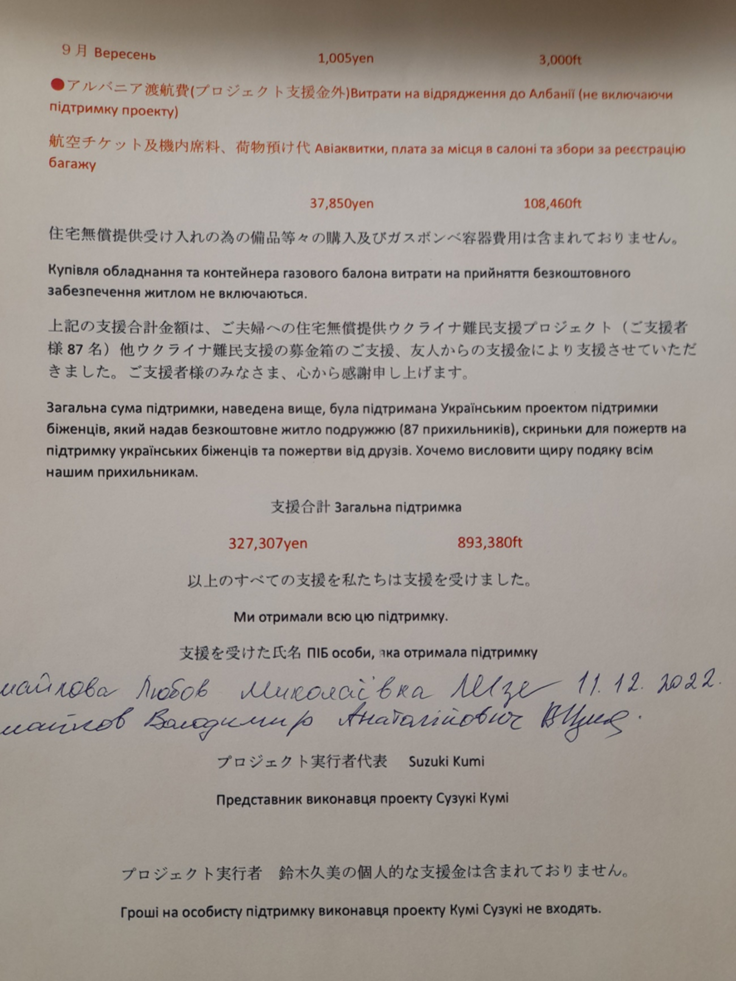 9月 Вересень 1,005yen 3,000ft
●アルバニア渡航費(プロジェクト支援金外)Витрати на відрядження до Албанії (не включаючи
підтримку проекту)
航空チケット及機内席料、荷物預け代 Авіаквитки, плата за місця в салоні та збори за реєстрацію
багажу
37,850yen 108,460ft
住宅無償提供受け入れの為の備品等々の購入及びガスボンベ容器費用は含まれておりません。
Купівля обладнання та контейнера газового балона витрати на прийняття безкоштовного
забезпечення житлом не включаються.
上記の支援合計金額は、ご夫婦への住宅無償提供ウクライナ難民支援プロジェクト（ご支援者
様 87 名）他ウクライナ難民支援の募金箱のご支援、友人からの支援金により支援させていただ
きました。ご支援者様のみなさま、心から感謝申し上げます。
Загальна сума підтримки, наведена вище, була підтримана Українським проектом підтримки
біженців, який надав безкоштовне житло подружжю (87 прихильників), скриньки для пожертв на
підтримку українських біженців та пожертви від друзів. Хочемо висловити щиру подяку всім
нашим прихильникам.
支援合計 Загальна підтримка
327,307yen 893,380ft
以上のすべての支援を私たちは支援を受けました。
Ми отримали всю цю підтримку.
支援を受けた氏名 ПІБ особи, яка отримала підтримку
Любов Миколаївка 11.12.2022.
Володимир Анатолійович
プロジェクト実行者代表 Suzuki Kumi
Представник виконавця проекту Сузукі Кумі
プロジェクト実行者 鈴木久美の個人的な支援金は含まれておりません。
Гроші на особисту підтримку виконавця проекту Кумі Сузукі не входять.